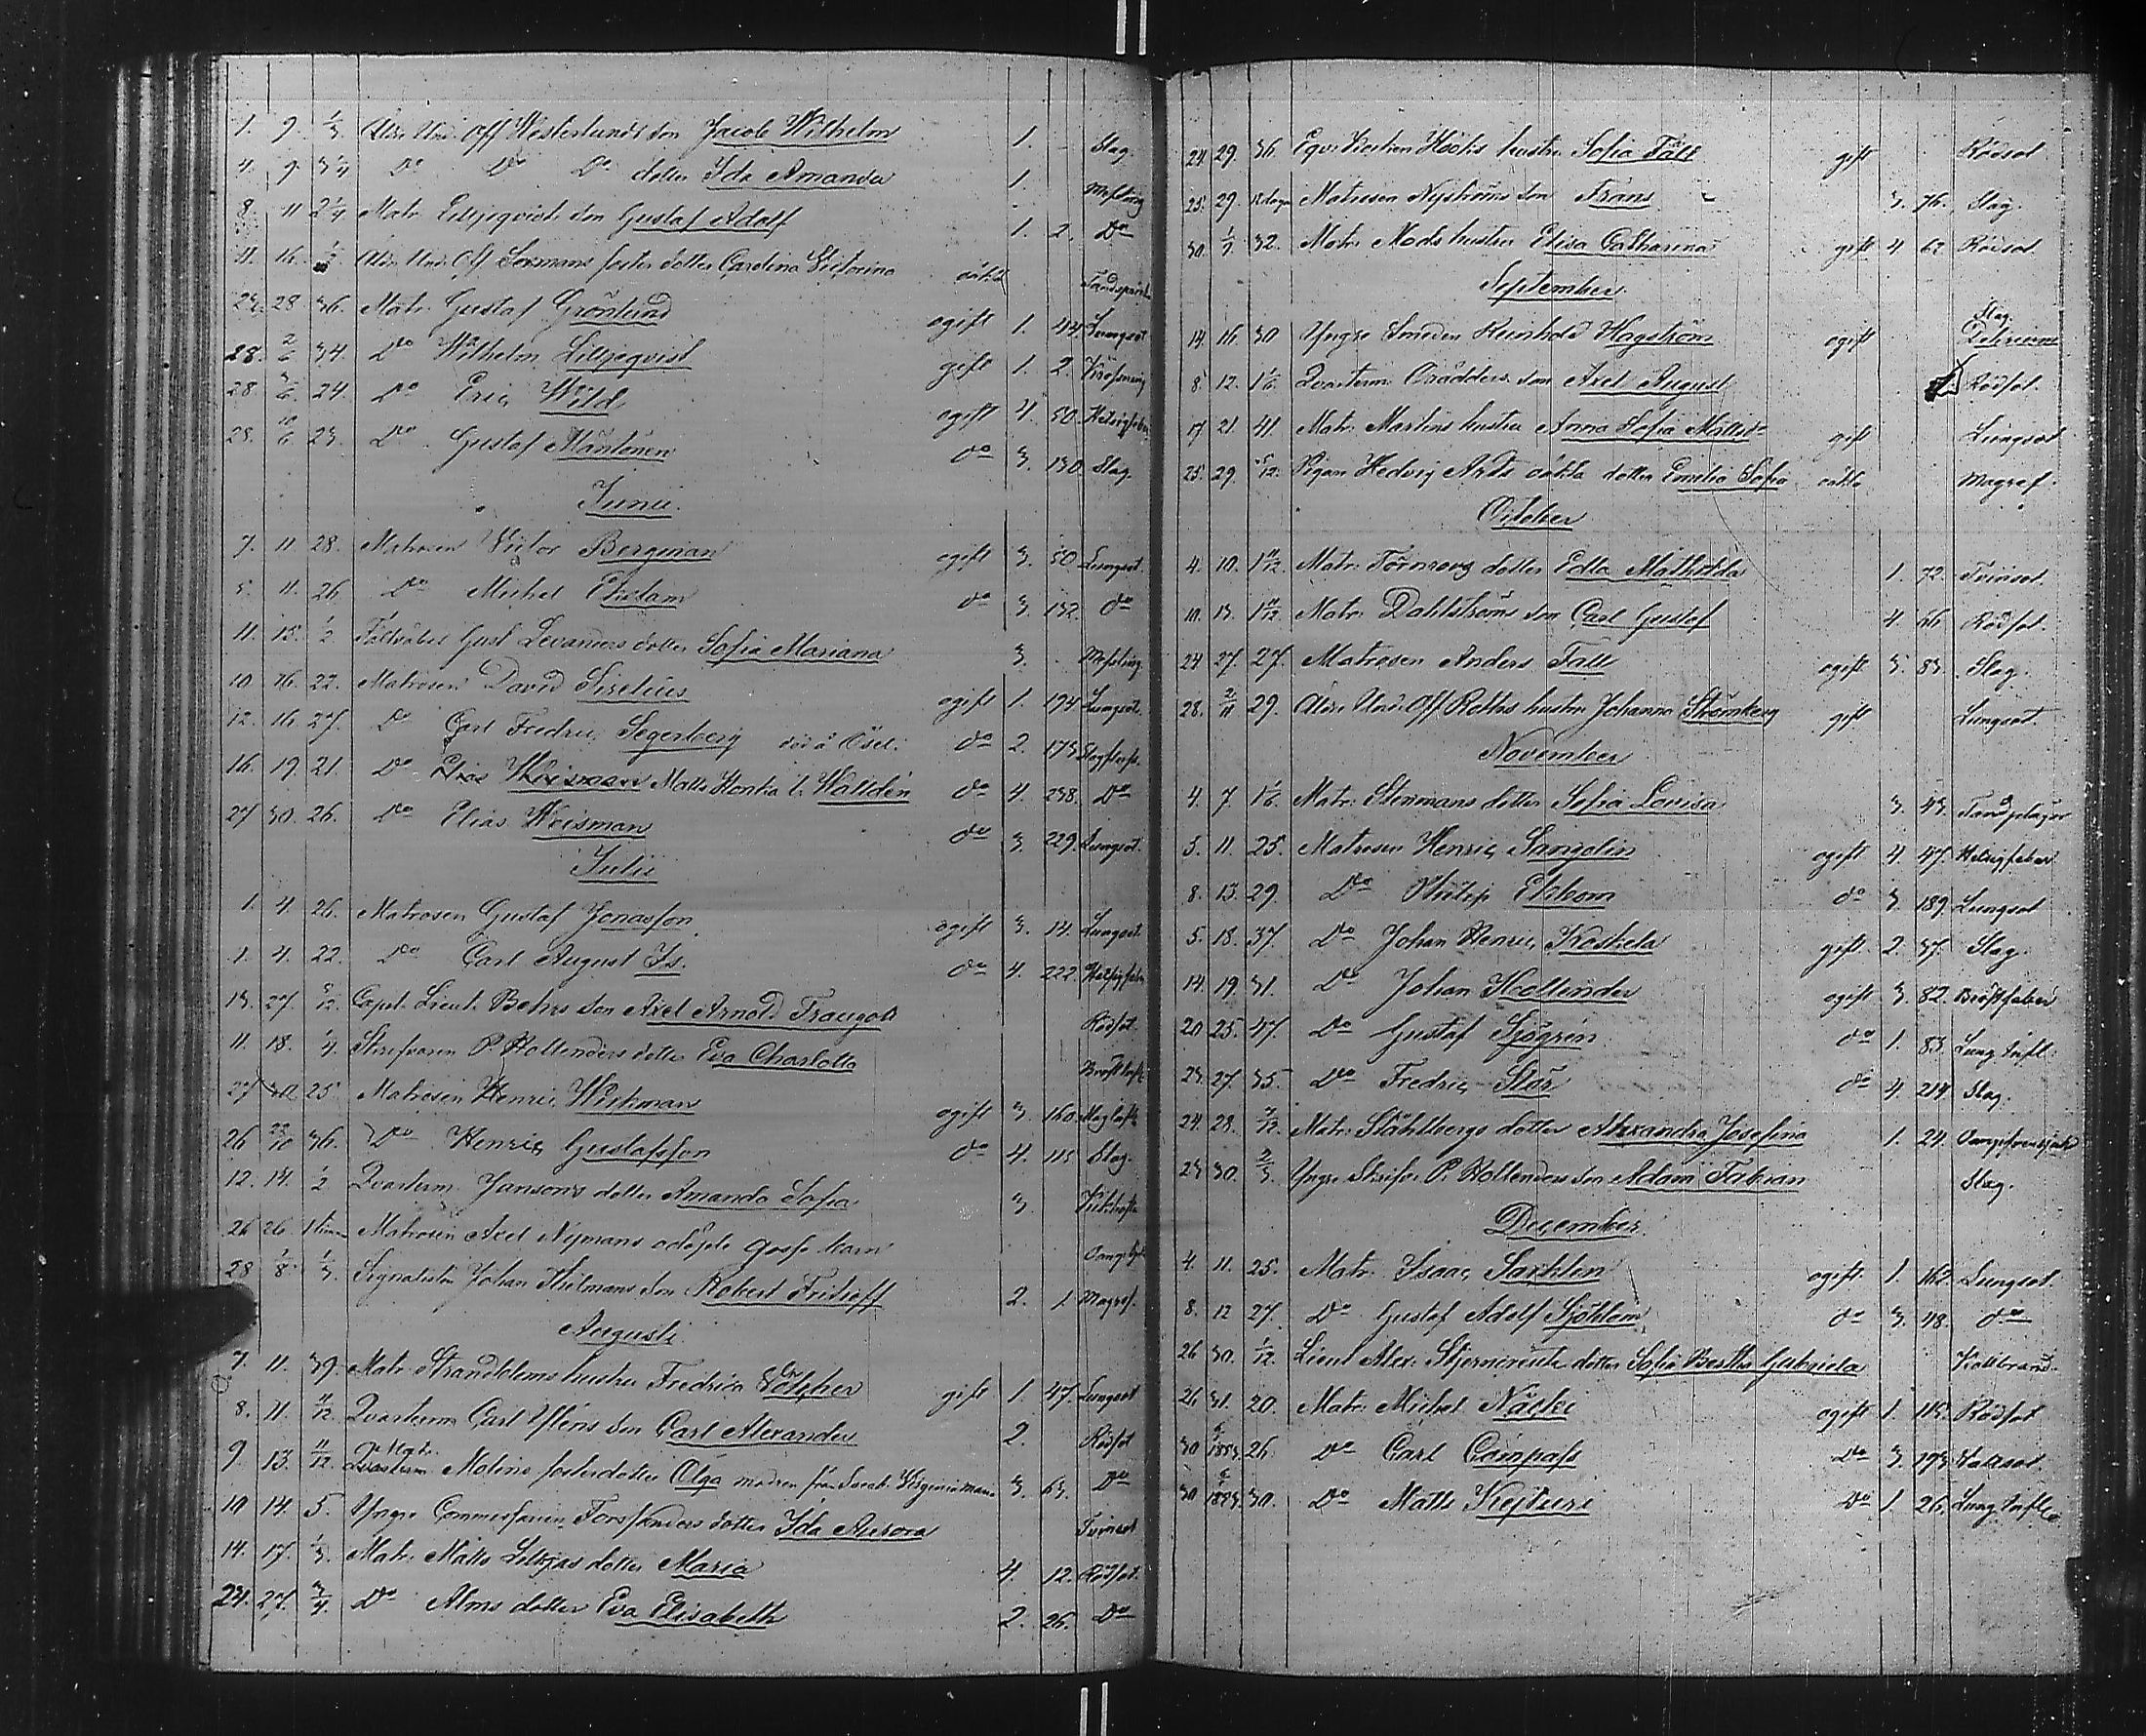 1. 9. 1/3 Äldr. Und. Off. Westerlunds son Jacob Wilhelm 1. Slag.
4. 9. 3/4 Do Do Do dotter Ida Amanda 1. Messling
8. 11 2 1/4 Matr. Liljeqvists son Gustaf Adolf 1. 2. Do
11. 16. Äldr. Und. Off. foster dotter Carolina Victorina oäkta
23. 28 36. Matr. Gustaf Grönlund ogift 1. 44. Lungsot
28. 2/6 34. Do Wilhelm Liljeqvist gift 1. 2.
28. 3/6 24. Do Eric Wild ogift 4. 50.
28. 10/6 23. Do Gustaf Mäntönen do 3. 130. Slag.
Junii.
7. 11 28. Matrosen Victor Bergman ogift 3. 50 Lungsot.
5. 11. 26 Do Michel Ekstam do 3. 132. do
11. 15. 1/2 Fältväbel Gust. Levanders dotter Sofia Mariana 3. Messling
10 16. 22. Matrosen David Sirelius ogift 1. 194 Lungsot.
12. 16. 27. Do Carl Fredric Segerberg död å Ösel. do 2. 175
16. 19. 21. Do Elias Weisman Matts Honka l. Walldén do 4. 238. Do
27 30. 26. Do Elias Weisman do 3. 229. Lungsot.
Julii
1. 4. 26. Matrosen Gustaf Jonasson ogift 3. 14. Lungsot.
1. 4. 22. Do Carl August Is. do 4. 222.
13. 27. Capit. Lieut. Behrs son Axel Arnold Traugott Rödsot.
11. 18. 1/4 Skrifvaren P. Hollenders dotter Eva Charlotta
27 25 Matrosen Henric Wikman ogift 3. 160.
26 36. Do Henric Gustafsson do 4. 115 Slag.
12. 14. 1/2 Qvarterm. Jansons dotter Amanda Sofia 3. Kikhosta
26 26. 1 timm Matrosen Axel Nymans odöpte gosse barn
28 1/8 1/3 Signalisten Johan Thilmans son Robert Fritioff 2. 1. Magref.
Augusti.
7. 11. 39. Matr. Strandholms hustru Fredrica gift 1. 47. Lungsot
8. 11. 11/12 Qvarterm. Carl Ulléns son Carl Alexander 2. Rödsot
9. 13. 11/12 Molins fosterdotter Olga modren från Sveab. 3. 63. Do
10 14. 5. Yngre Commissarien Forsstenders dotter Ida Aurora Tvinsot
14. 17. 1/3 Matr. Matts dotter Maria 4. 12. Rödsot.
24. 27. 3/4 Do Alms dotter Eva Elisabeth 2. 26. Do
24 29. 36. Eqv. Höoks hustru Sofia Fält gift Rödsot
25. 29. Matrosen Nyströms son Frans 3. 76. Slag.
30 1/9 32. Matr. Mods hustru Elisa Catharina gift 4 62 Rödsot
September.
14. 16. 30 Yngre Smeden Reinhold Hagström ogift Slag. Delirium
8. 12. 1 1/6 Qvarterm. Orädders son Axel August Rödsot.
17 21. 41. Matr. Martins hustru Anna Sofia gift Lungsot
25. 29. Pigan Hedvig Arts oäkta dotter Emelia Sofia oäkta Magref.
October
4. 10. 1 11/12. Matr. Törnroos dotter Edla Mathilda 1. 72. Tvinsot.
10. 13. 1 11/12. Matr. Dahlströms son Carl Gustaf 4. 66 Rödsot.
24 27. 27. Matrosen Anders Fält ogift 3. 83. Slag.
28. 2/11 29. Äldre Und. Off. Roths hustru Johanna Strömberg gift Lungsot.
November
4. 7. 1 1/6. Matr. Stenmans dotter Sofia Lovisa 3. 43. Tandplågor
5. 11. 25. Matrosen Henric Sangelin ogift 4. 47.
8. 13. 29. Do Philip Ekbom do 3. 189. Lungsot
5. 18. 37. Do Johan Henric Koskela gift. 2. 37. Slag.
14. 19. 31. Do Johan Hollender ogift 3. 82. Bröstfeber
20 25. 47. Do Gustaf Sjögren do 1. 83. Lung Infl.
23. 27. 35. Do Fredric Stör do 4. 214. Slag.
24. 28. Matr. Ståhlbergs dotter Alexandra Josefina 1. 24.
23 30. 2/3 Yngr. Skrifv. P. Hollenders son Adam Fabian Slag.
December.
4. 11. 25. Matr. Isaac Saxhlen ogift. 1. 162. Lungsot.
8. 12 27. Do Gustaf Adolf Sjöblom do 3. 48. do
26 30. 1/12. Lieut. Alex. Stjerncreutz dotter Sofia Bertha Gabriela Kallbrand.
26. 31. 20. Matr. Michel Näcki ogift 1. 115. Rödsot
30 1853. 26. Do Carl Compass Do 3. 193.
30 1853. 30. Do Matts Do 1. 26. Lung Infl.